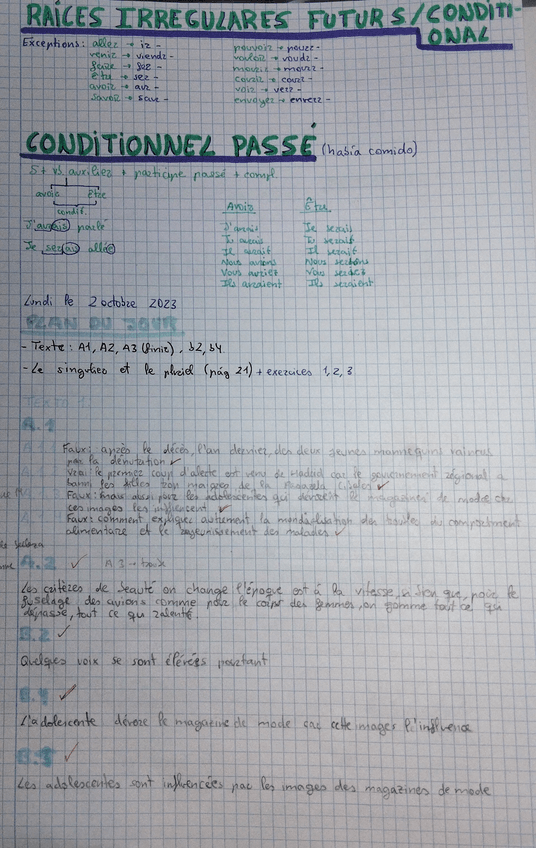 RAÍCES IRREGULARES FUTUR S/CONDITI-
ONAL
Exceptions: aller → ir- pouvoir → pourr-
venir → viendr- vouloir → voudr-
faire → fer- mourir → mourr-
être → ser- courir → courr-
avoir → aur- voir → verr-
savoir → saur- envoyer → enverr-
CONDITIONNEL PASSÉ (había comido)
S + vb. auxilier + participe passé + compl.
avoir être
condit.
J'aurais parlé
Je serais allé
Avoir Être
J'aurais Je serais
Tu aurais Tu serais
Il aurait Il serait
Nous aurions Nous serions
Vous auriez Vous seriez
Ils auraient Ils seraient
Lundi le 2 octobre 2023
PLAN DU JOUR
- Texte: A1, A2, A3 (finir), b2, b4.
- Le singulier et le pluriel (pág 21) + exercices 1, 2, 3
TEXTO 1:
A.1
Faux: après le décès, l'an dernier, des deux jeunes mannequins vaincus
par la dénutrition ✓
Vrai: le premier coup d'alerte est venu de Madrid car le gouvernement régional a
banni les belles trop maigres de la Pasarela Cibeles ✓
Faux: mais aussi pour les adolescentes qui dévorent le magazines de mode car
ces images les influencent ✓
Faux: comment expliquer autrement la mondialisation des troubles du comportement
alimentaire et le rajeunissement des malades ✓
A.2 ✓ A 3 → faux
Les critères de beauté on change l'époque est à la vitesse, si bien que, pour le
fuselage des avions comme pour le corps des femmes, on gomme tout ce qui
dépasse, tout ce qui ralentit.
B.2 ✓
Quelques voix se sont élevées pourtant
B.4 ✓
L'adolescente dévore le magazine de mode car cette images l'influence
B.5 ✓
Les adolescentes sont influencées par les images des magazines de mode